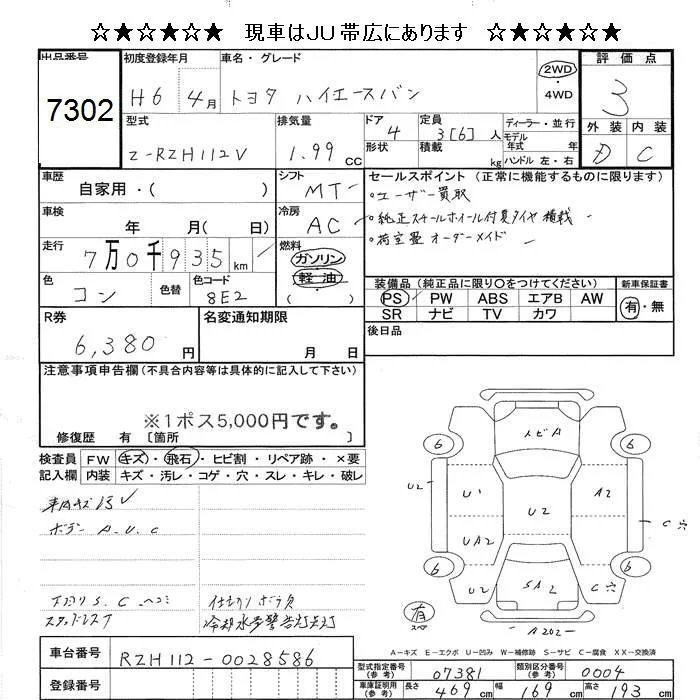 ☆★☆★☆★☆ 現車はJU帯広にあります ☆★☆★☆★☆
出品番号 初度登録年月 車名・グレード 評価点
7302 H6 年 4月 トヨタ ハイエースバン 2WD ・ 4WD 3
型式 排気量 ドア 定員 ディーラー・並行 外装 内装
Z-RZH112V 1.99 CC 4 3[6]人 モデル年式 年式 D C
形状 積載 kg ハンドル 左・右
車歴 シフト セールスポイント (正常に機能するものに限ります)
自家用・( ) MT ・ユーザー買取
車検 年 月( 日) 冷房 AC ・純正スチールホイール付夏タイヤ積載
走行 7万0千935km 燃料 ガソリン ・荷室畳オーダーメイド
色 コン 色替 色コード 8E2 軽油 ( )
装備品 (純正品に限り○をつけてください) 新車保証書
PS PW ABS エアB AW 有・無
SR ナビ TV カワ
R券 名変通知期限 後日品
6,380 円 月 日
注意事項申告欄(不具合内容等は具体的に記入して下さい)
※1ポス5,000円です。
修復歴 有 〔箇所
検査員 FW キズ・飛石・ヒビ割・リペア跡・×要
記入欄 内装 キズ・汚レ・コゲ・穴・スレ・キレ・破レ
車内キズ汚レ
ボデー A.U.C
下廻りS.C.ヘコミ
スタッドレス
仕切りボラ穴
冷却水等警告灯点灯
トビA
6 6
U2 U1 U2 A2 C穴
UA2 U2
6 6
U2 SA2 C穴
有 スペア
A2U2
A-キズ E-エクボ U-凹み W-補修跡 S-サビ C-腐食 XX-交換済
車台番号 RZH112-0028586
登録番号
型式指定番号(参考) 07381 類別区分番号(参考) 0004
車庫証明用(参考) 長さ 469 cm 幅 169 cm 高さ 193 cm